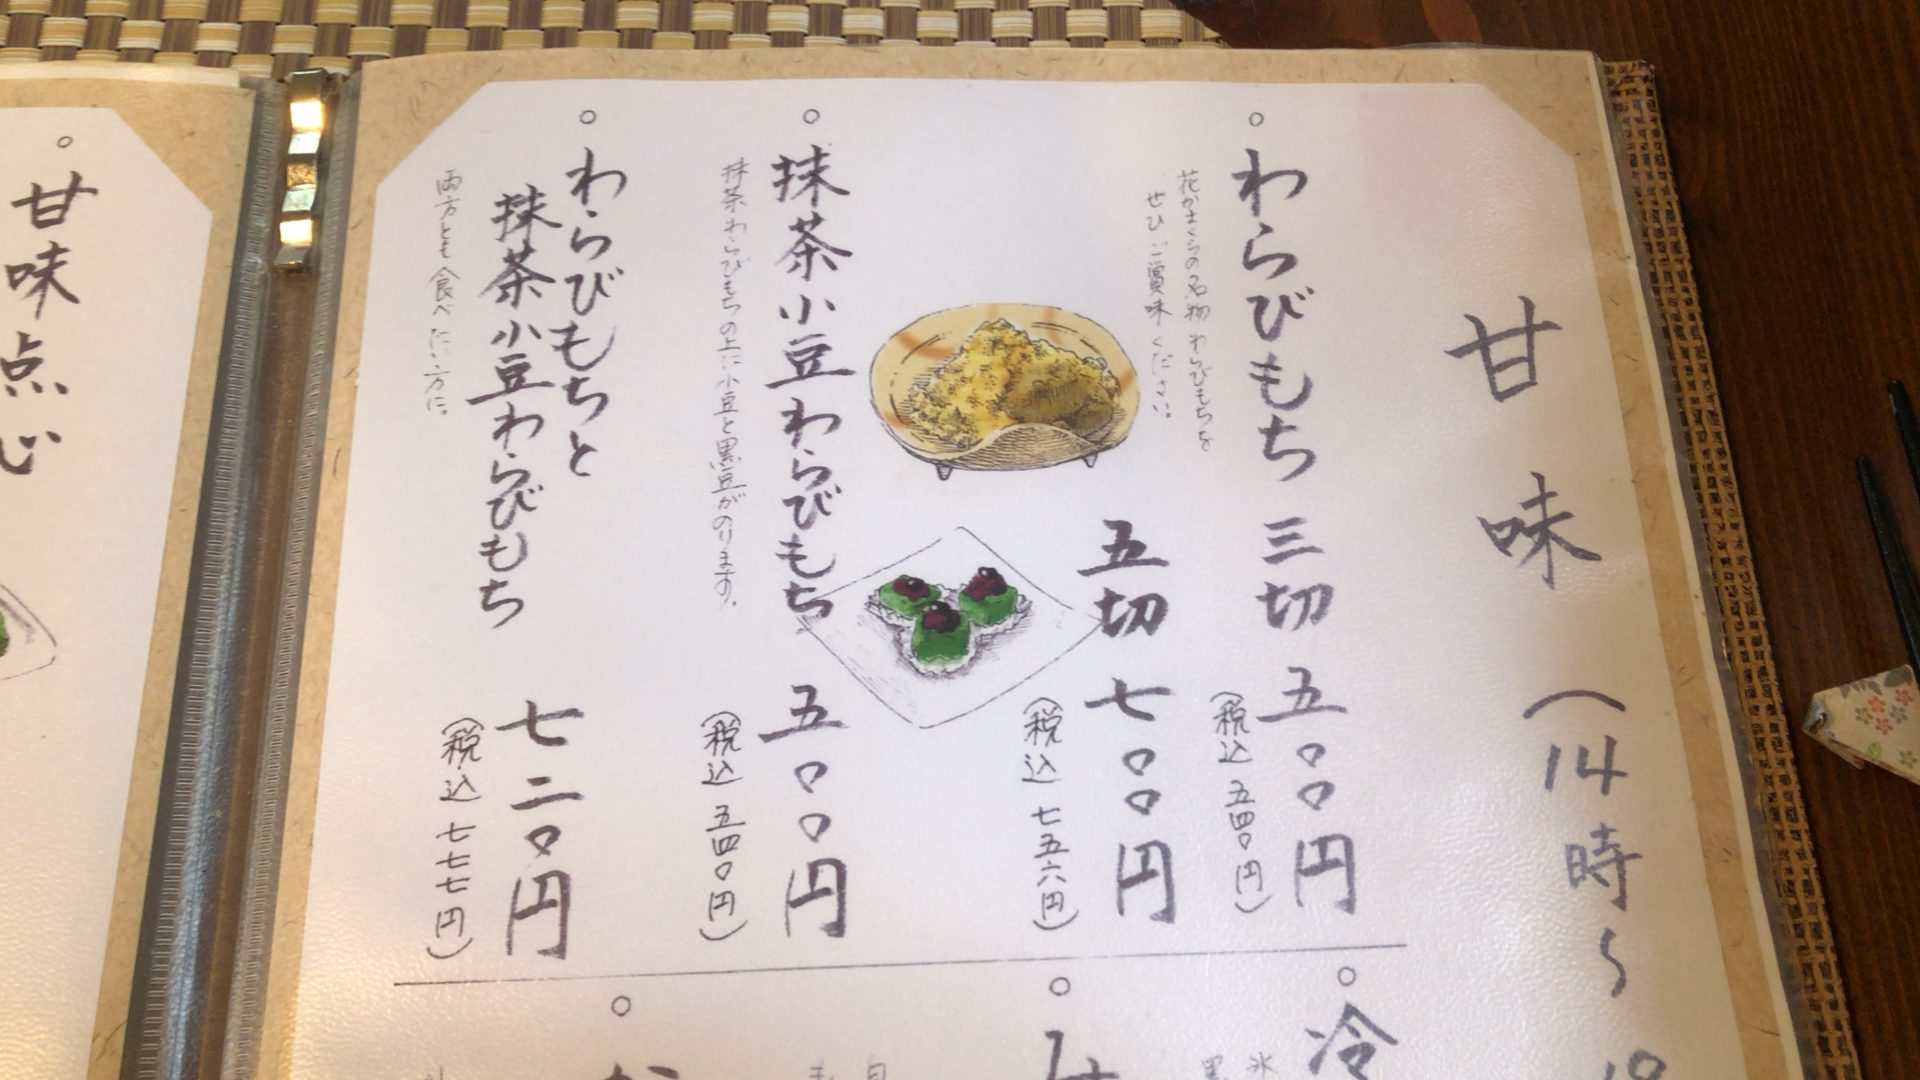 甘味（14時〜
わらびもち 三切 五〇〇円
（税込 五四〇円）
五切 七〇〇円
（税込 七五六円）
花がさくらの名物 わらびもちを
ぜひ ご賞味 ください。
抹茶小豆わらびもち 五〇〇円
（税込 五四〇円）
抹茶わらびもちの上に小豆と黒豆がのります。
わらびもちと
抹茶小豆わらびもち 七二〇円
（税込 七七七円）
両方とも食べたい方に。
冷
甘味点心